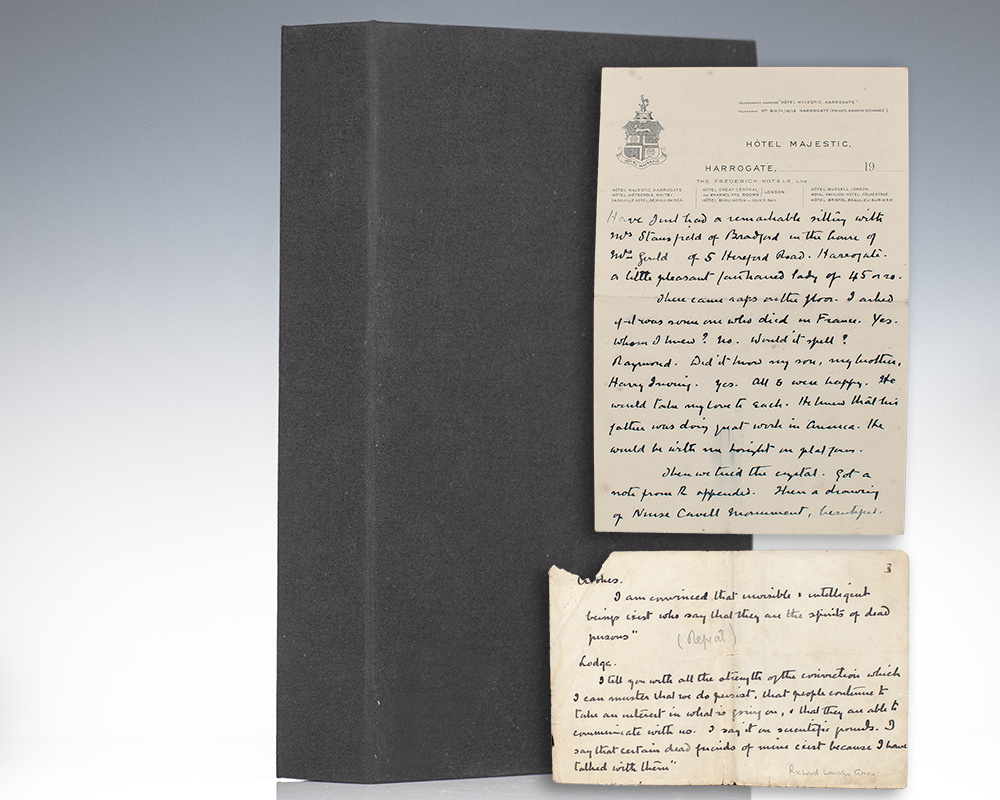 TELEGRAPHIC ADDRESS "HÔTEL MAJESTIC, HARROGATE."
HARROGATE (PRIVATE BRANCH EXCHANGE)
HÔTEL MAJESTIC
HÔTEL MAJESTIC,
HARROGATE, 19
THE FREDERICK HOTELS, LTD
HÔTEL MAJESTIC, HARROGATE. HÔTEL GREAT CENTRAL HÔTEL RUSSELL, LONDON.
HÔTEL MÉTROPOLE, WHITBY. AND WHARNCLIFFE ROOMS LONDON. ROYAL PAVILION HOTEL, FOLKESTONE
SACKVILLE HÔTEL, BEXHILL-ON-SEA. HÔTEL BURLINGTON - DOVER BAY. HÔTEL BRISTOL, BEAULIEU-SUR-MER.
Have just had a remarkable sitting with
Mrs Stansfield of Bradford in the house of
Mrs Gould of 5 Hereford Road. Harrogate.
a little pleasant fairhaired lady of 45 or so.
There came raps on the floor. I asked
if it was some one who died in France. Yes.
Whom I knew? No. Would it spell?
Raymond. Did it know my son, my brother,
Harry Irving. Yes. All were happy. He
would take my love to each. He knew that his
father was doing great work in America. He
would be with me tonight on platform.
Then we tried the crystal. Got a
note from R appended. Then a drawing
of Nurse Cavell Monument, beautiful.
3
Crookes.
I am convinced that invisible & intelligent
beings exist who say that they are the spirits of dead
persons"
(Repeat)
Lodge.
I tell you with all the strength of the conviction which
I can muster that we do persist, that people continue to
take an interest in what is going on, & that they are able to
communicate with us. I say it on scientific grounds. I
say that certain dead friends of mine exist because I have
talked with them"
Richard Lancelyn Green